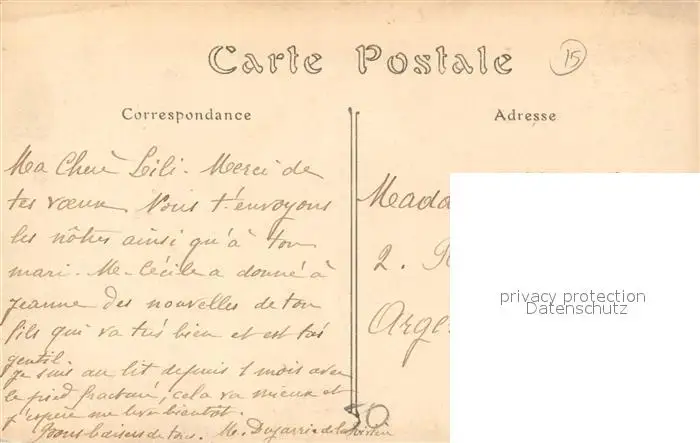 Carte Postale
15
Correspondance
Adresse
Ma Chère Lili. Merci de
tes vœux. Nous t'envoyons
les nôtres ainsi qu'à ton
mari. Me Cécile a donné à
Jeanne des nouvelles de ton
fils qui va très bien et est très
gentil.
Je suis au lit depuis 1 mois avec
le pied fracturé, cela va mieux et
j'espère me lever bientôt.
Bons baisers de tous. Me. Dugarric de la
50
2.
privacy protection
Datenschutz